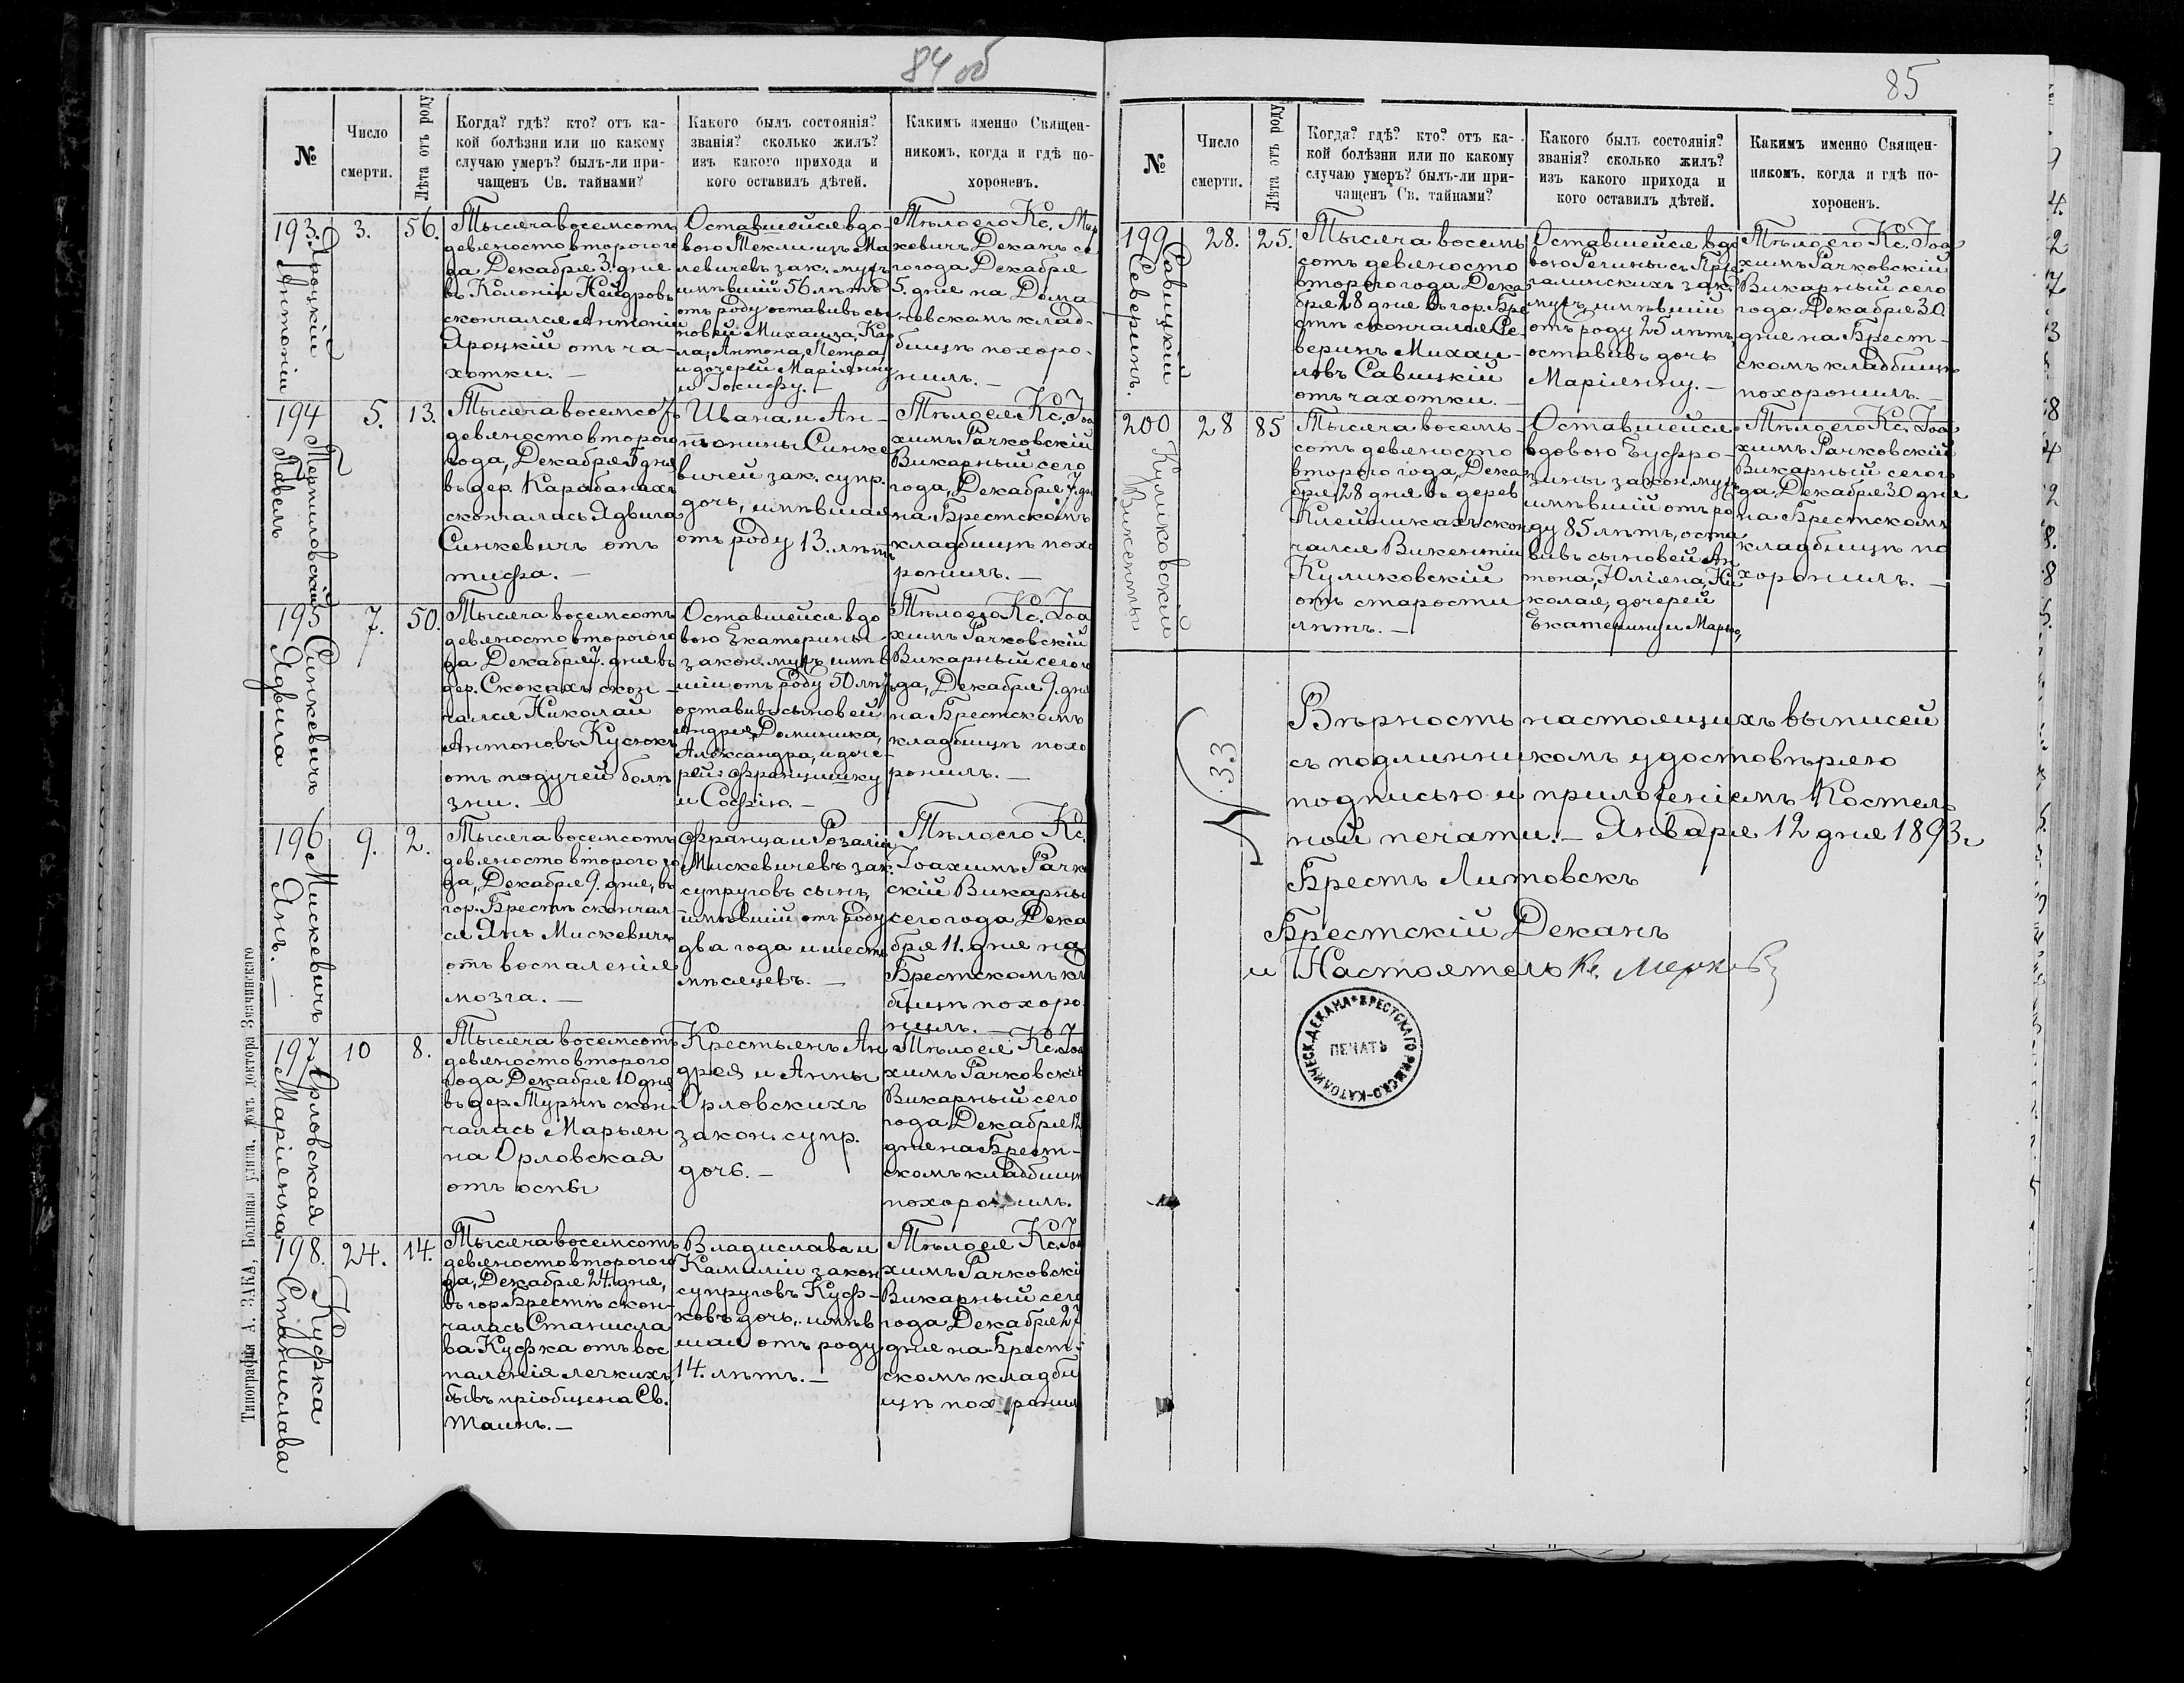 84 об
№
Число
смерти.
Лѣта отъ роду
Когда? гдѣ? кто? отъ ка-
кой болѣзни или по какому
случаю умеръ? былъ-ли при-
чащенъ Св. тайнами?
Какого былъ состоянія?
званія? сколько жилъ?
изъ какого прихода и
кого оставилъ дѣтей.
Какимъ именно Священ-
никомъ, когда и гдѣ по-
хороненъ.
193.
Яроцкій
Антоній
3.
56.
Тысяча восемсотъ
девяносто второго го
да Декабря 3. дня
въ Колоніи Нейдровъ
скончался Антоній
Яроцкій отъ ча-
хотки. —
Оставшейся вдо-
вою Теклии изъ Ма
левичевъ зак. мужъ
имѣвшій 56 лѣтъ
отъ роду оставивъ сы
новей Михаила, Кар
ла, Антона, Петра
и дочерей Маріянну
и Іозифу. —
Тѣло его Кс. Мер
кевичъ Деканъ се
го года Декабря
5. дня на Дома
чевскомъ клад-
бищѣ похоро-
нилъ. —
194
Терпиловскій
Павелъ
5.
13.
Тысяча восемсотъ
девяносто второго
года, Декабря 5 дня
въ дер. Карабанахъ
скончалась Ядвига
Синкевичъ отъ
тифа. —
Ивана и Ан-
тонины Синке
вичей зак. супр.
дочь, имѣвшая
отъ роду 13. лѣтъ
Тѣло ея Кс. Іоа
химъ Рачковскій
Викарный сего
года, Декабря 7. дн
на Брестскомъ
кладбищѣ похо
ронилъ. —
195
Синкевичъ
Ядвига
7.
50.
Тысяча восемсотъ
девяносто второго го
да Декабря 7. дня въ
дер. Скокахъ скон-
чался Николай
Антоновъ Кусюкъ
отъ падучей болѣ
зни. —
Оставшейся вдо
вою Екатерины
закон. мужъ имѣв
шій отъ роду 50 лѣтъ
оставивъ сыновей
Андрея, Доминика,
Александра, и доче-
рей: Францишку
и Софію. —
Тѣло его Кс. Іоа
химъ Рачковскій
Викарный сего го
да, Декабря 9. дня
на Брестскомъ
кладбищѣ похо
ронилъ. —
196
Мискевичъ
Янъ. —
9.
2.
Тысяча восемсотъ
девяносто второго го
да, Декабря 9. дня, въ
гор. Брестѣ скончал
ся Янъ Мискевичъ
отъ воспаленія
мозга. —
Франца и Розаліи
Мискевичевъ зак.
супруговъ сынъ,
имѣвшій отъ роду
два года и шесть
мѣсяцевъ. —
Тѣло его Кс.
Іоахимъ Рачков
скій Викарный
сего года Дека
бря 11. дня на
Брестскомъ кл
бищѣ похоро
нилъ. —
197
Орловская
Маріянна
10
8.
Тысяча восемсотъ
девяносто второго
года Декабря 10 дня
въ дер. Турнѣ скон
чалась Марьян
на Орловская
отъ оспы
Крестьянъ Ан
дрея и Анны
Орловскихъ
закон. супр.
дочь. —
Тѣло ея Кс. Іоа
химъ Рачковскій
Викарный сего
года Декабря 12
дня на Брест-
скомъ кладбищѣ
похоронилъ.
198.
Куфка
Станислава
24.
14.
Тысяча восемсотъ
девяносто второго го
да, Декабря 24. дня,
въ гор. Брестѣ скон-
чалась Станисла
ва Куфка отъ вос
паленія легкихъ,
бывъ пріобщена Св.
Таинъ. —
Владислава и
Камиліи закон
супруговъ Куф-
ковъ дочь, имѣв
шая отъ роду
14. лѣтъ. —
Тѣло ея Кс. Іоа
химъ Рачковскі
Викарный сего
года Декабря 27
дня на Брест-
скомъ кладби
щѣ похоронил
Типографія А. ЗАКА, Большая улица, домъ доктора Звичинскаго
85
№
Число
смерти.
Лѣта отъ роду
Когда? гдѣ? кто? отъ ка-
кой болѣзни или по какому
случаю умеръ? былъ-ли при-
чащенъ Св. тайнами?
Какого былъ состоянія?
званія? сколько жилъ?
изъ какого прихода и
кого оставилъ дѣтей.
Какимъ именно Священ-
никомъ, когда и гдѣ по-
хороненъ.
199
Савицкій
Северинъ.
28.
25.
Тысяча восемь
сотъ девяносто
второго года Дека
бря 28 дня въ гор. Бре
стѣ скончался Се-
веринъ Михаи-
ловъ Савицкій
отъ чахотки. —
Оставшейся вдо
вою Регины съ
галинскихъ зак.
мужъ имѣвшій
отъ роду 25 лѣтъ,
оставивъ дочь
Маріянну. —
Тѣло его Кс. Іоа
химъ Рачковскій
Викарный сего
года Декабря 30
дня на Брест-
скомъ кладбищѣ
похоронилъ. —
200
Куликовскій
Викентій
28
85
Тысяча восемь-
сотъ девяносто
второго года, Дека
бря 28 дня въ дерев
Клейникахъ скон
чался Викентій
Куликовскій
отъ старости
лѣтъ. —
Оставшейся
вдовою Еуфро-
зины закон. мужъ
имѣвшій отъ ро
ду 85 лѣтъ, оста
вивъ сыновей Ан
тона, Юліяна, Ни
колая, дочерей
Екатерину и Марью,
Тѣло его Кс. Іоа
химъ Рачковскій
Викарный сего го
да Декабря 30 дня
на Брестскомъ
кладбищѣ по
хоронилъ. —
Вѣрность настоящихъ выписей
съ подлинникомъ удостовѣряю
подписью и приложеніемъ Костель
ной печати. — Января 12 дня 1893 г
Брестъ Литовскъ
Брестскій Деканъ
и Настоятель Кс. Меркевичъ
№ 33
ПЕЧАТЬ
БРЕСТСКАГО РИМСКО-КАТОЛИЧЕСК. ДЕКАНА